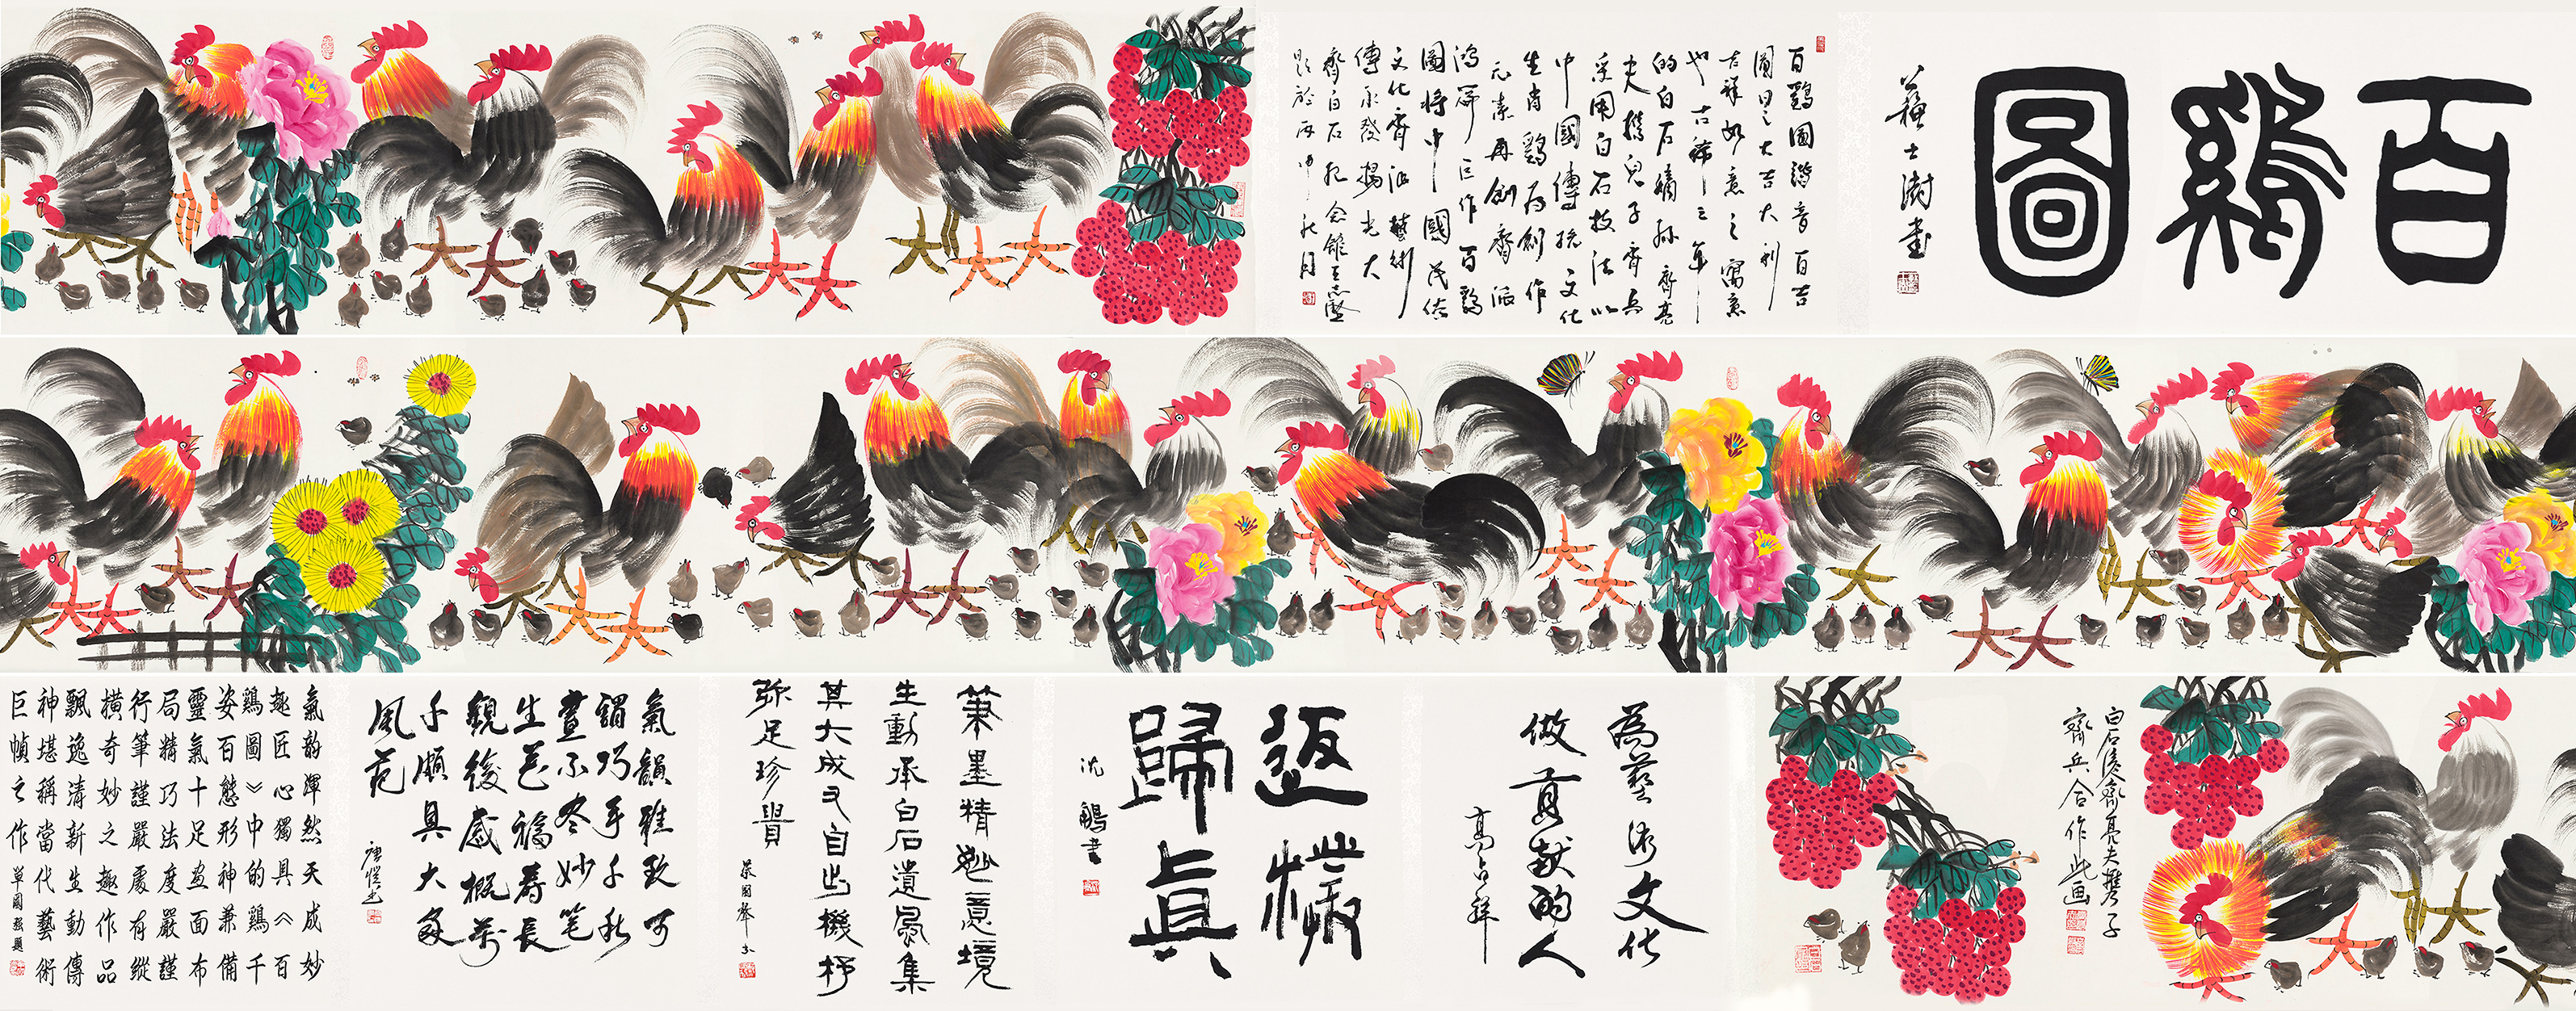 百鷄圖
蘇士澍書
百鷄圖諧音百吉
圖曰之大吉大利
吉祥如意之寓意
也古稀之年
的白石嫡孫齊亮
夫携兒子齊兵
采用白石技法以
中國傳統文化
生肖鷄為創作
元素再創齊派
鴻篇巨作百鷄
圖將中國民俗
文化齊派藝術
傳承發揚光大
齊白石紀念館王志堅
題於丙申秋月
白石後裔齊亮夫攜子
齊兵合作此画
為藝術文化
做貢献的人
高占祥
返樸
歸真
沈鵬書
筆墨精妙意境
生動承白石遺風集
其大成又自出機杼
弥足珍貴
蔡國聲書
氣韻雅致可
謂巧手千秋
畫不尽妙笔
生花福壽長
觀後感概萬
千頗具大家
風范
氣韵渾然天成妙
趣匠心獨具《百
鷄圖》中的鷄千
姿百態形神兼備
靈氣十足畫面布
局精巧法度嚴謹
行筆謹嚴處有縱
橫奇妙之趣作品
飄逸清新生動傳
神堪稱當代藝術
巨幀之作
單國強題